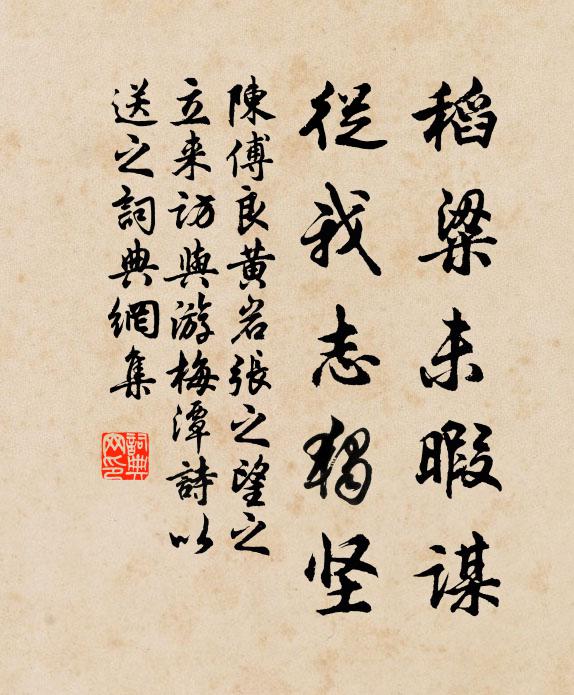 稻粱未暇谋
従我志独坚
陳傅良黄岩張之望之
立来訪與游梅潭詩以
送之詞典網集
詞典網印